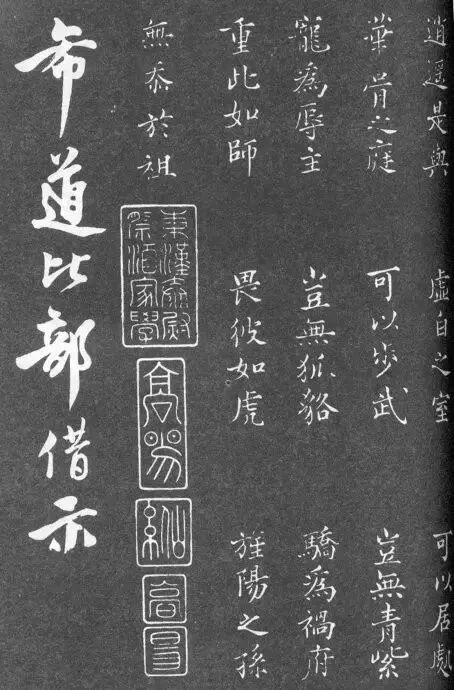 逍遙是與 虛白之室 可以居處
華胥之庭 可以步武 豈無青紫
寵為辱主 豈無狐貉 驕為禍府
重此如師 畏彼如虎 旌陽之孫
無忝於祖
東漢太尉
祭酒家學
希道比部借示